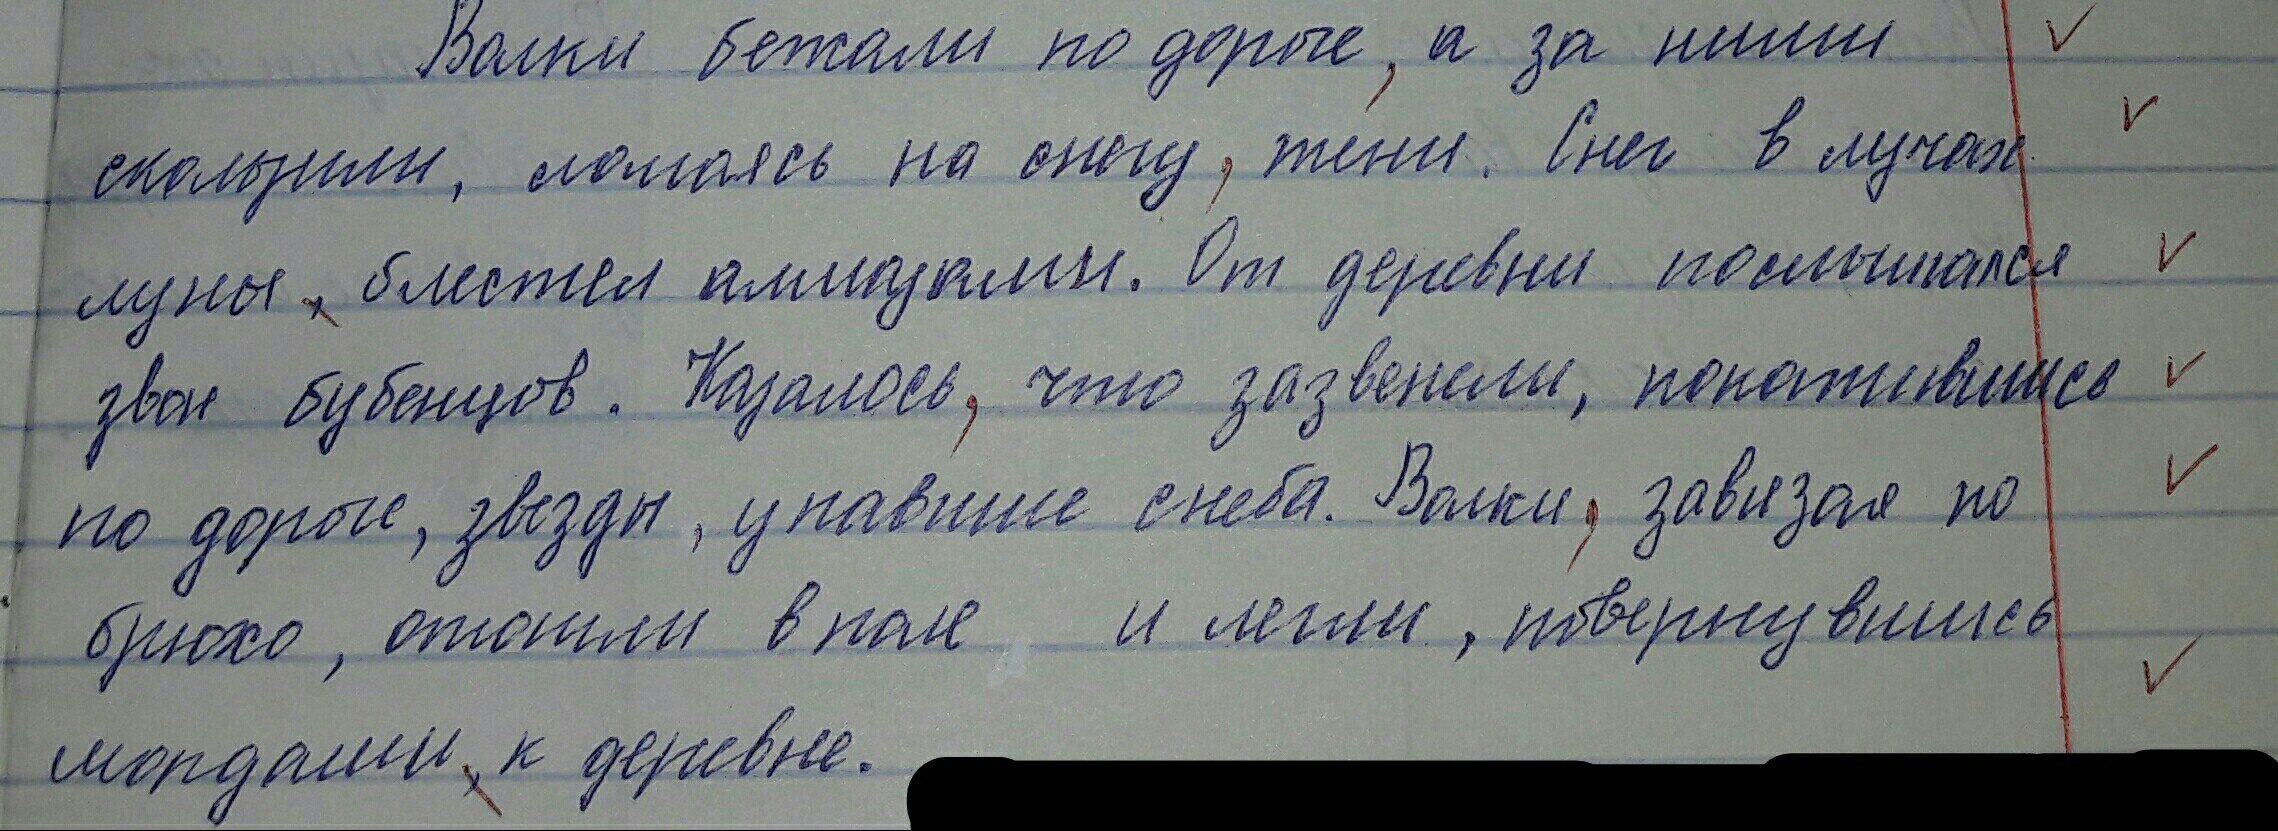 Волки бежали по дороге, а за ними
скользили, ломаясь на снегу, тени. Снег в лучах
луны, блестел алмазами. От деревни послышался
звон бубенцов. Казалось, что зазвенели, покатившись
по дороге, звезды, упавшие снеба. Волки, завязая по
брюхо, отошли в поле и легли, повернувшись
мордами, к деревне.